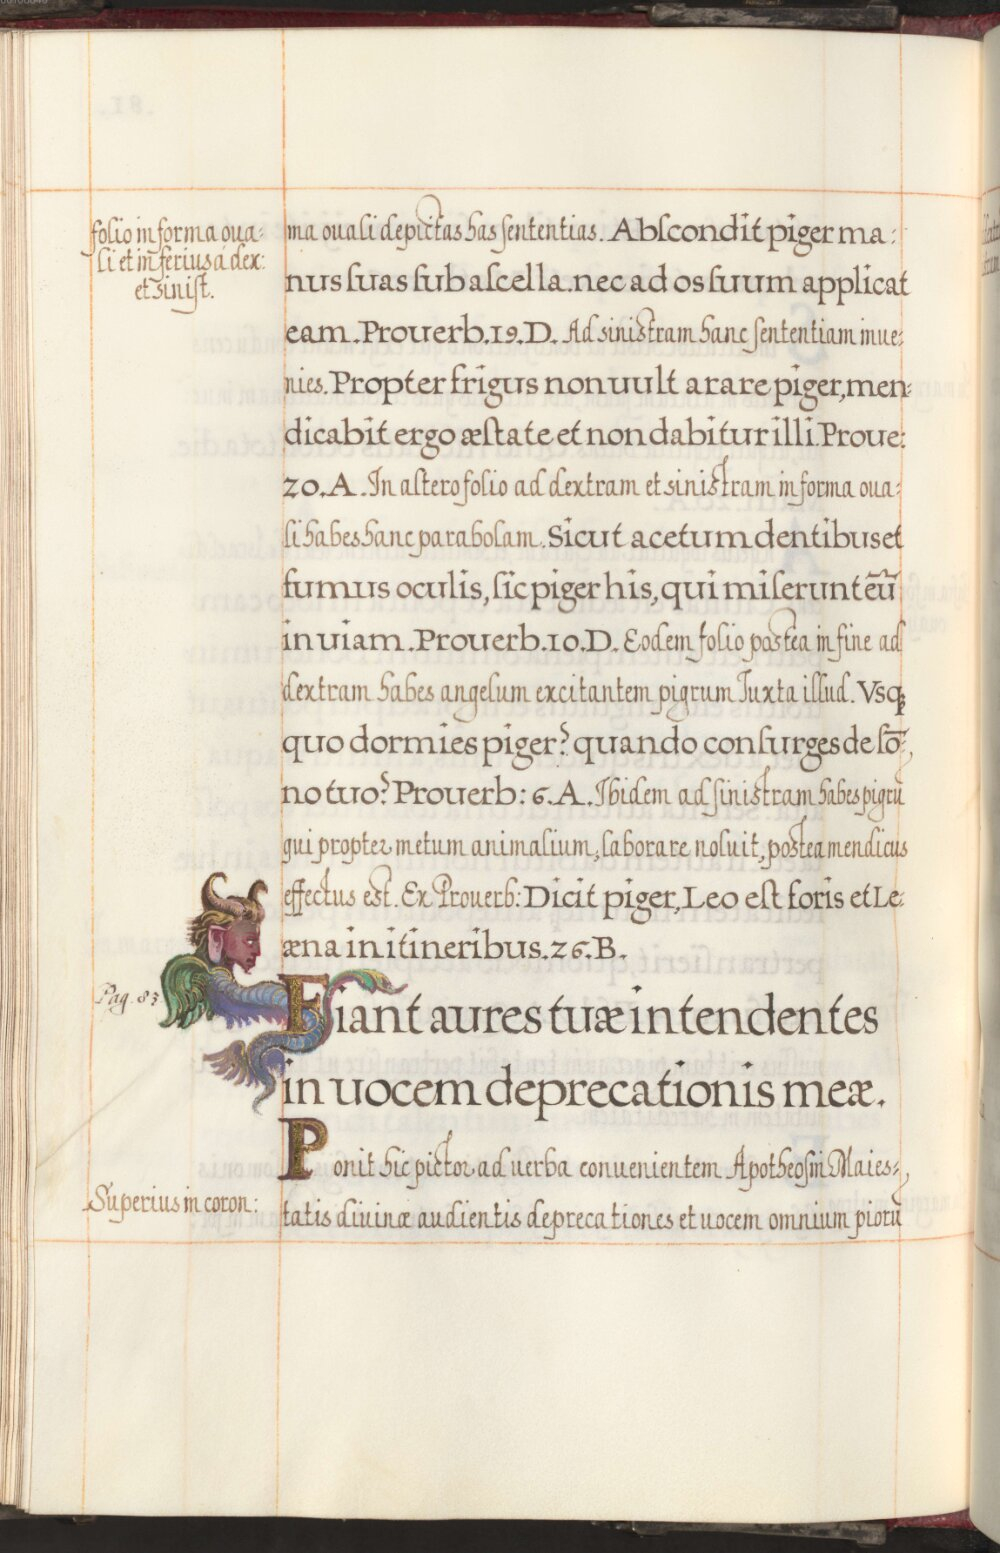 folio in forma oua-
li et inferius a dex:
et sinist.
ma ouali depictas has sententias. Abscondit piger ma-
nus suas sub ascella. nec ad os suum applicat
eam. Prouerb. 19. D. Ad sinistram hanc sententiam inue-
nies. Propter frigus non uult arare piger, men-
dicabit ergo æstate et non dabitur illi. Proue:
20. A. In altero folio ad dextram et sinistram in forma oua-
li habes hanc parabolam. Sicut acetum dentibus et
fumus oculis, sic piger his, qui miserunt eū
in uiam. Prouerb. 10. D. Eodem folio postea in fine ad
dextram habes angelum excitantem pigrum Iuxta illud. Vsq
quo dormies piger? quando consurges de sō-
no tuo? Prouerb: 6. A. Ibidem ad sinistram habes pigrū
qui propter metum animalium, laborare noluit, postea mendicus
effectus est. Ex Prouerb: Dicit piger, Leo est foris et Le-
æna in itineribus. 26. B.
Pag. 83
Fiant aures tuæ intendentes
in uocem deprecationis meæ.
Ponit hic pictor ad uerba conuenientem Apotheosin Maies-
Superius in coron:
tatis diuinæ audientis deprecationes et uocem omnium piorū